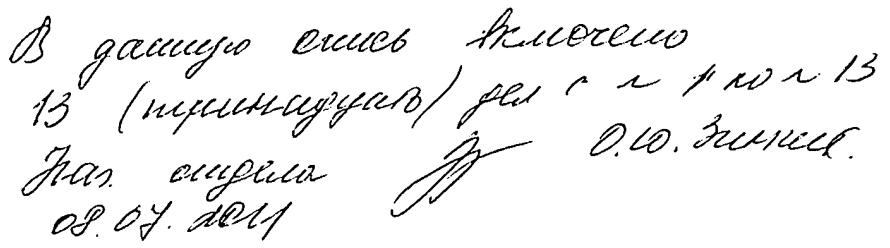 В данную опись включено
13 (тринадцать) дел с № 1 по № 13
Нач. отдела О.Ю.
08.07.2011